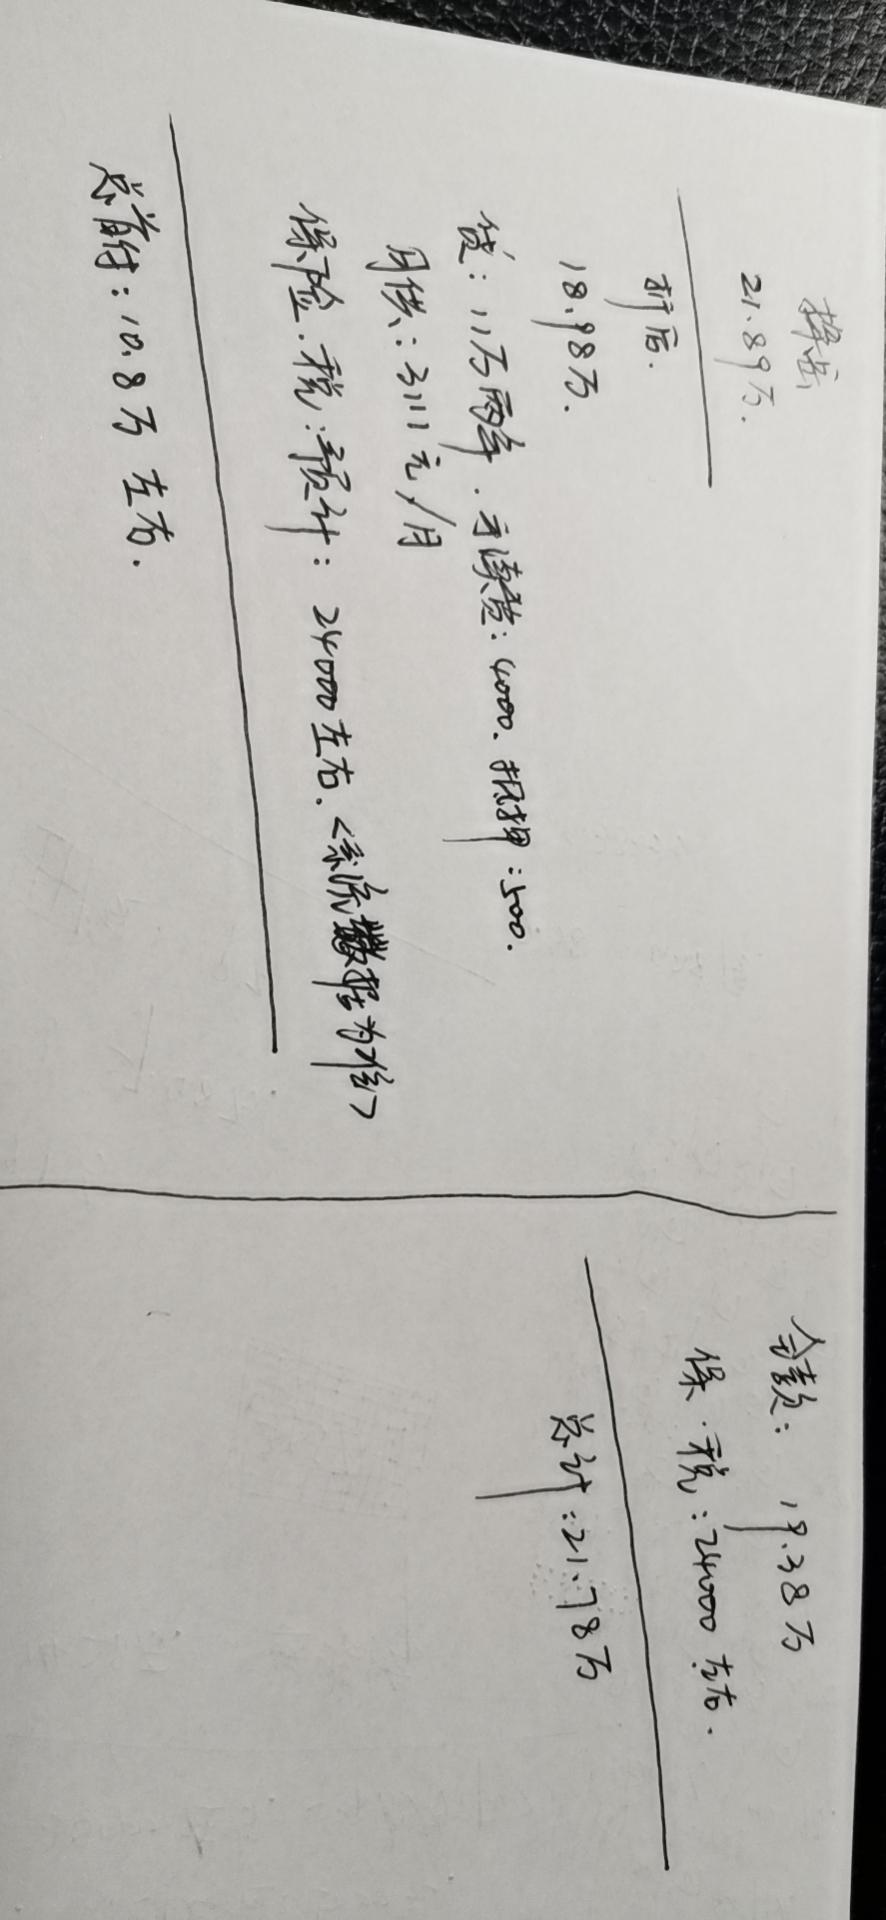 探岳
21.89万.
折后.
18.98万.
贷：11万两年.手续费：4000.抵押：500.
月供：3111元/月
保险.税：预计：24000左右.<系统数据为准>
总首付：10.8万左右.
全款：19.38万
保.税：24000左右.
总计：21.78万